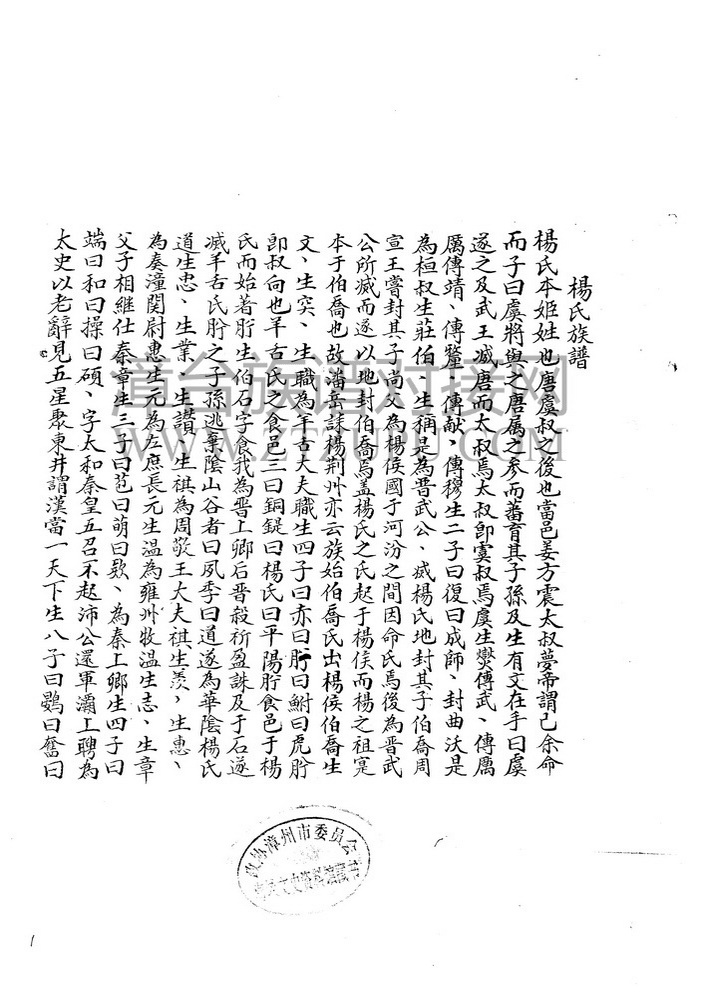 楊氏族譜
楊氏本姬姓也唐虞叔之後也當邑姜方震太叔夢帝謂己余命
而子曰虞將與之唐属之参而蕃育其子孫及生有文在手曰虞
遂之及武王滅唐而太叔焉太叔卽虞叔焉虞生燮傳武、傳厲
厲傳靖、傳釐、傳献、傳穆生二子曰復曰成師、封曲沃是
為桓叔生莊伯、生稱是為晋武公、威楊氏地封其子伯喬周
宣王嘗封其子尚父為楊侯國于河汾之間因命氏焉後為晋武
公所滅而遂以地封伯喬焉盖楊氏之氏起于楊侯而楊之祖寔
本于伯喬也故潘岳誄楊荆州亦云族始伯喬氏出楊侯伯喬生
文、生突、生職為羊舌大夫職生四子曰赤曰肸曰鮒曰虎肸
卽叔向也羊舌氏之食邑三曰銅鍉曰楊氏曰平陽肸食邑于楊
氏而始著肸生伯石字食我為晋上卿后晋殺祈盈誅及于石遂
滅羊舌氏肸之子孫逃棄陰山谷者曰夙季曰道遂為華陰楊氏
道生忠、生業 生讃、生祺為周敬王大夫祺生羡、生惠、
為秦潼関尉惠生元為左庶長元生温為雍州牧温生志、生章
父子相継仕秦章生三子曰苞曰萌曰欵、為秦上卿生四子曰
端曰和曰操曰碩、字太和秦皇五召不起沛公還軍灞上聘為
太史以老辭見五星聚東井謂漢當一天下生八子曰鷃曰奮曰
政协漳州市委员会
漳台族谱对接网
WWW.ZTZUPU.COM
1